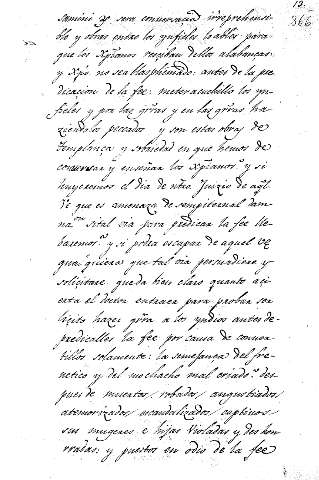 12.
366
saminis xo sera conversaçion irreprehensi
ble y obras entre los ynfieles loables para
que los Xpianos resciban dellos alabanças
y Xpo no sea blasphemado: antes de la pre
dicacion de la fee: meter a cuchillo los yn
fieles y por haz guerras y en las guerras ha
ziendo los peccados y son estas obras de
templança y sobriedad en que hemos de
conversar y enseñar los Xpianos y si
huyeremos el dia de nuestro Juyzio de aql
Ve que es amenaza de sempiternal dam
naon si tal via para predicar la fee lle
baremos y si podra escapar de aquel ve
qualquiera que tal via persuadiere y
solicitare. queda bien claro quanto aci
erta el doctor en traer para probar ser
licito hazer guerra a los yndios antes de
predicalles la fee por causa de conver
tillos solamente: la semejança del fre
netico y del mochacho mal criado: des
pues de muertos, robados, angustiados,
atemorizados, escandalizados, captivos
sus mugeres e hijas violadas y deshon
rradas, y puestos en odio de la fee